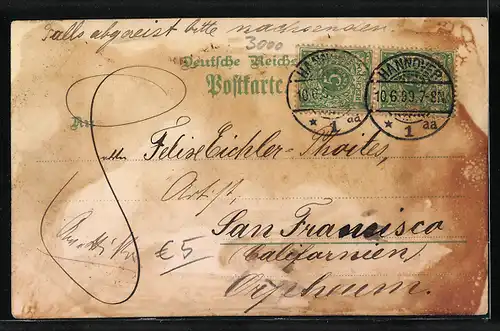 Falls abgereist bitte nachsenden
3000
Deutsche Reichs
Postkarte
An
HANNOVER
10.6.99.7-8N.
* 1 aa
HANNOVER
10.6
* 1 aa
Felix Eichler-Thoiles,
Artist,
San Francisco
€5
Californien
Orpheum.